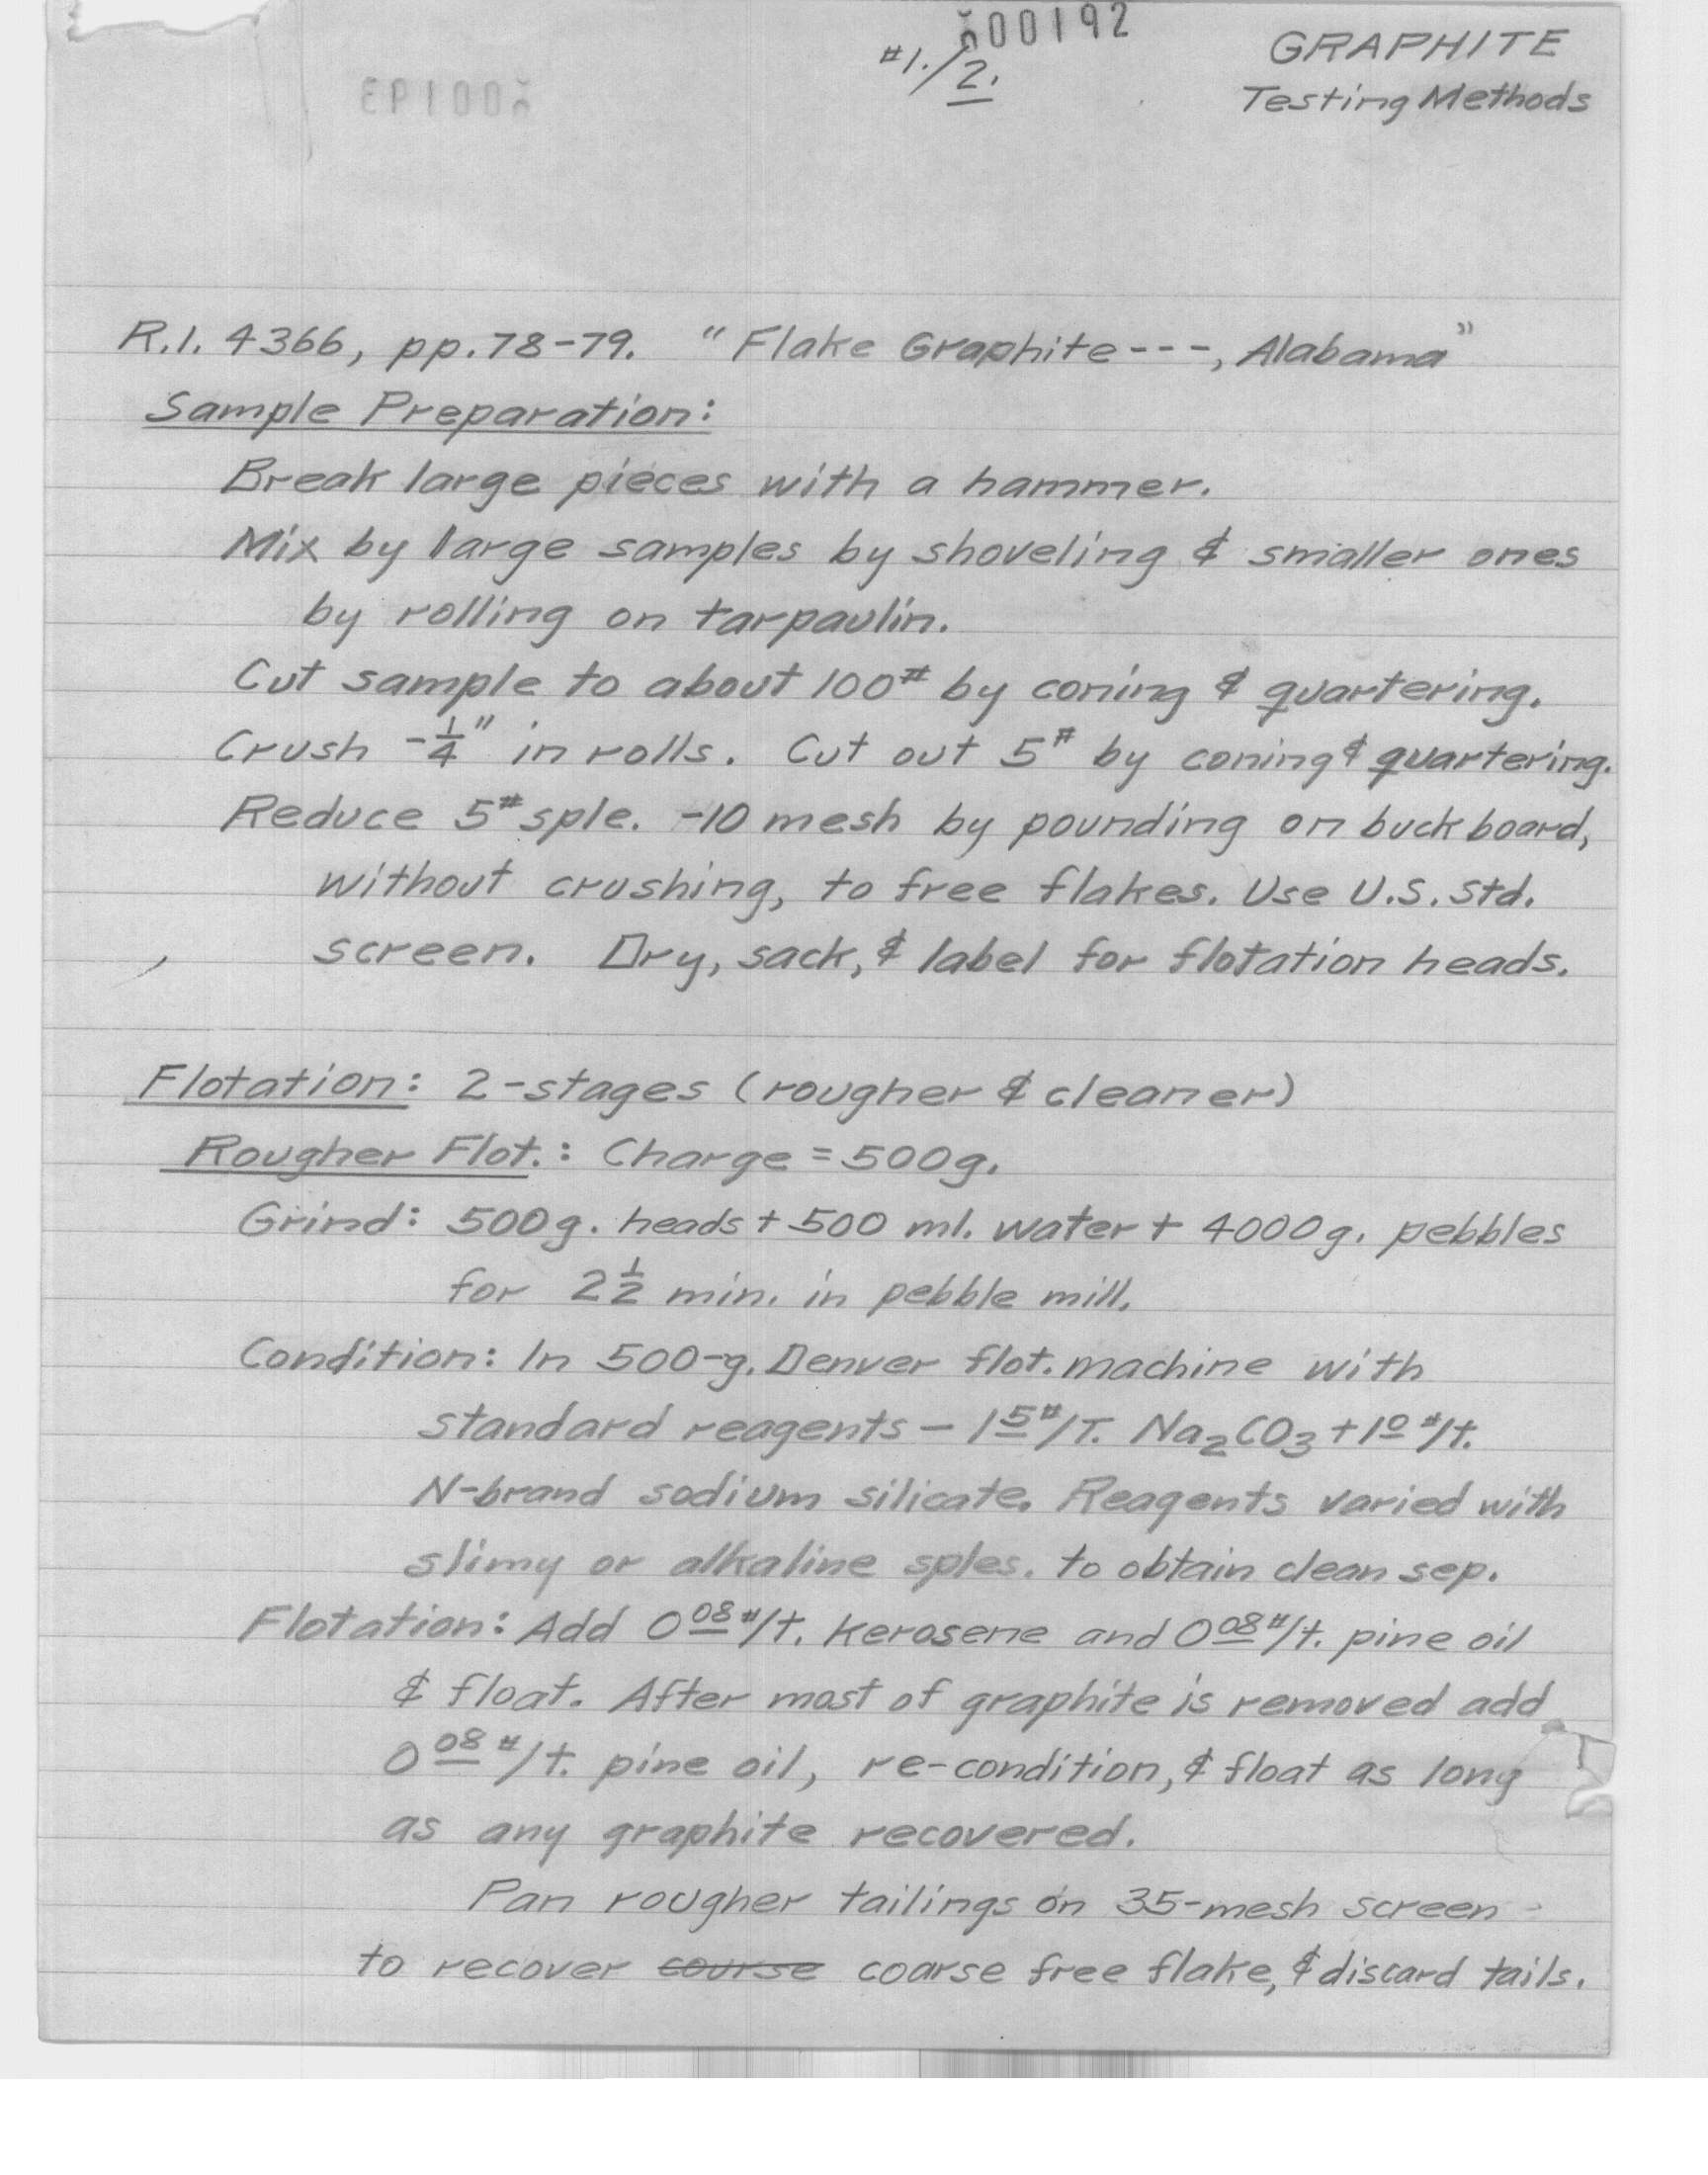 000192
#1./2.
GRAPHITE
Testing Methods
R.I. 4366, pp. 78-79. "Flake Graphite ---, Alabama"
Sample Preparation:
Break large pieces with a hammer.
Mix by large samples by shoveling & smaller ones
by rolling on tarpaulin.
Cut sample to about 100# by coning & quartering.
Crush -1/4" in rolls. Cut out 5# by coning & quartering.
Reduce 5# sple. -10 mesh by pounding on buckboard,
without crushing, to free flakes. Use U.S. Std.
screen. Dry, sack, & label for flotation heads.
Flotation: 2-stages (rougher & cleaner)
Rougher Flot.: Charge = 500g.
Grind: 500g. heads + 500 ml. water + 4000g. pebbles
for 2 1/2 min. in pebble mill.
Condition: In 500-g. Denver flot. machine with
standard reagents - 1 5#/T. Na2CO3 + 1 0 #/t.
N-brand sodium silicate. Reagents varied with
slimy or alkaline sples. to obtain clean sep.
Flotation: Add 0 08 #/t. kerosene and 0 08 #/t. pine oil
& float. After most of graphite is removed add
0 08 #/t. pine oil, re-condition, & float as long
as any graphite recovered.
Pan rougher tailings on 35-mesh screen
to recover course coarse free flake, & discard tails.